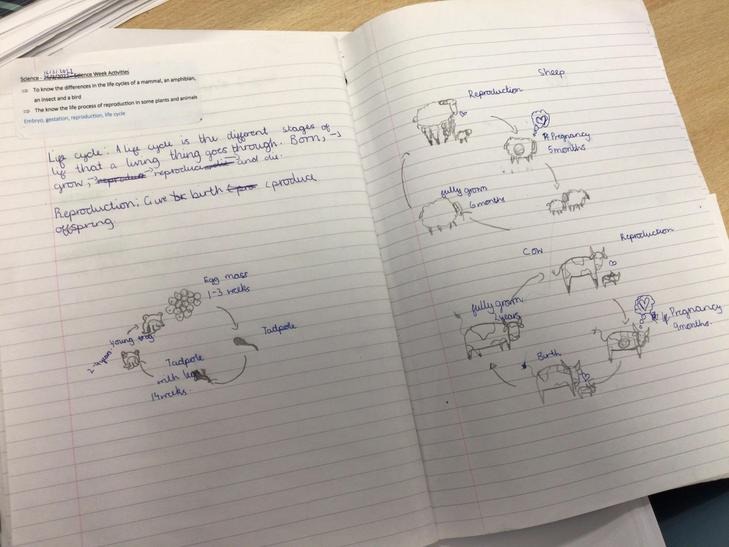 Science - Science Week Activities
To know the differences in the life cycles of a mammal, an amphibian,
an insect and a bird
The know the life process of reproduction in some plants and animals
Embryo, gestation, reproduction, life cycle
Life cycle: A life cycle is the different stages of
life that a living thing goes through. Born,
grow, reproduce and die.
Reproduction: Give birth produce
offspring
Egg mass
1-3 weeks
Tadpole
Tadpole
with legs
14 weeks
young frog
Sheep
Reproduction
Pregnancy
5 months
fully grown
6 months
Cow
Reproduction
Pregnancy
9 months.
Birth
fully grown
2 years